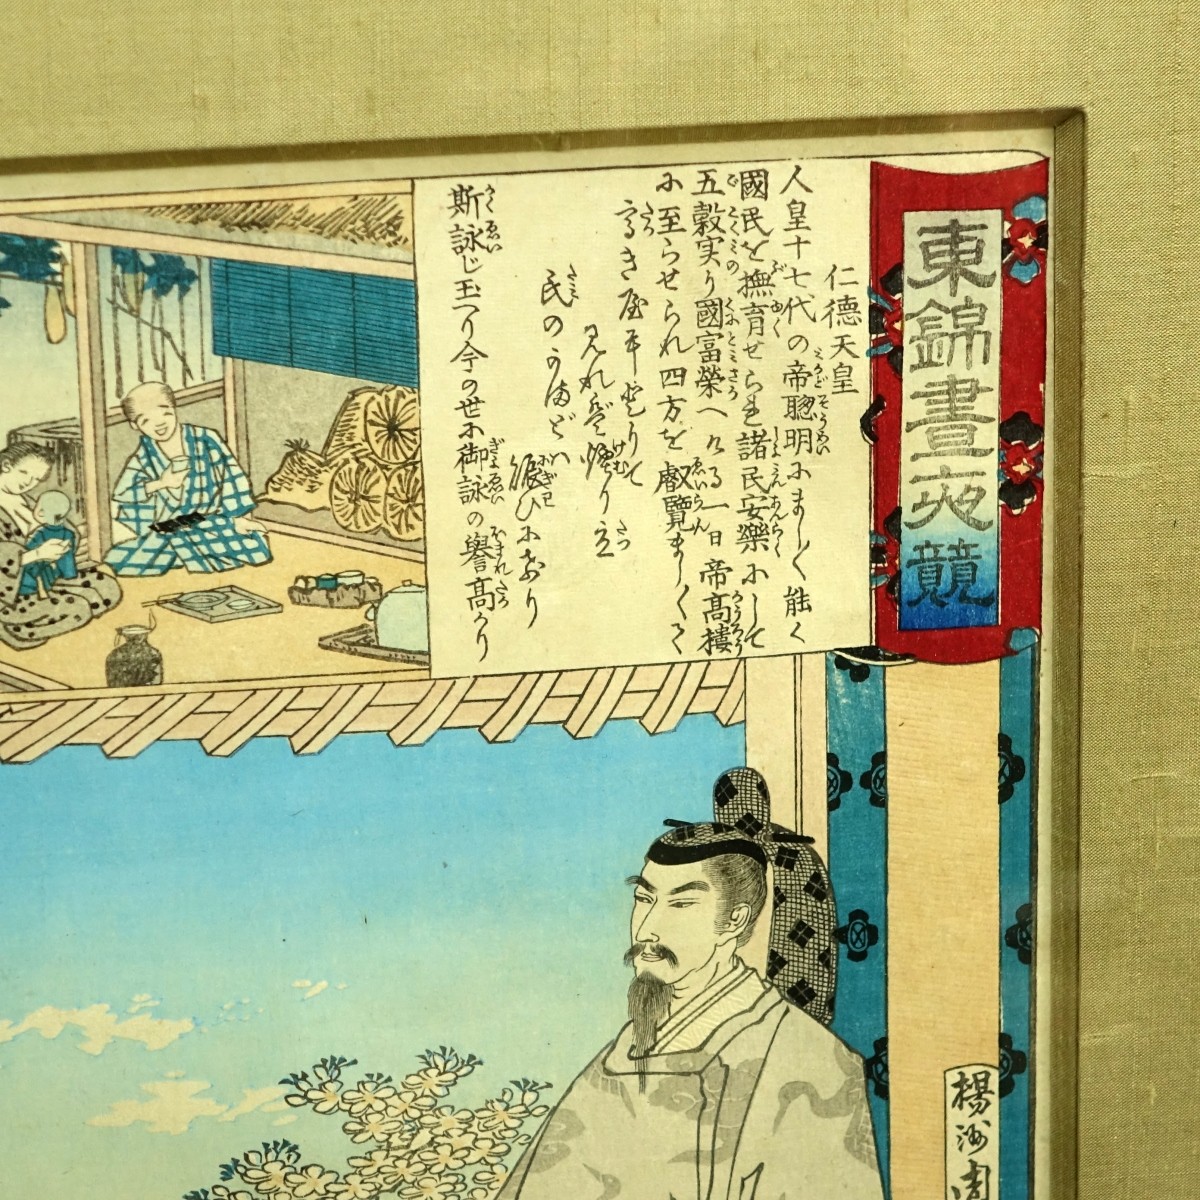 東錦晝夜競
仁徳天皇
人皇十七代の帝聰明にまし〱能く
國民を撫育せられ諸民安樂にして
五穀実り國富榮へける一日帝高樓
に至らせられ四方を叡覽まし〱て
高き屋に登りて
見れば煙り立
民のかまどは
賑ひにけり
斯詠じ玉へり今の世に御詠の譽高かり
楊洲周